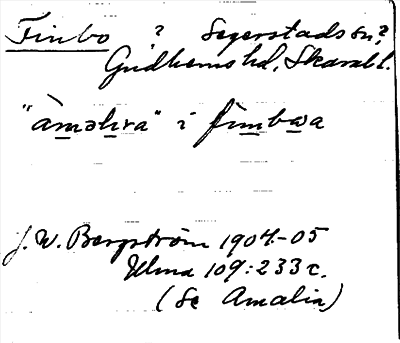 Finbo ? Segerstads sn?
Gudhems hd, Skarab l.
"àməlıva" i fìmbωa
J. W. Bergström 1904-05
Ulma 109:233 c.
(Se Amalia)